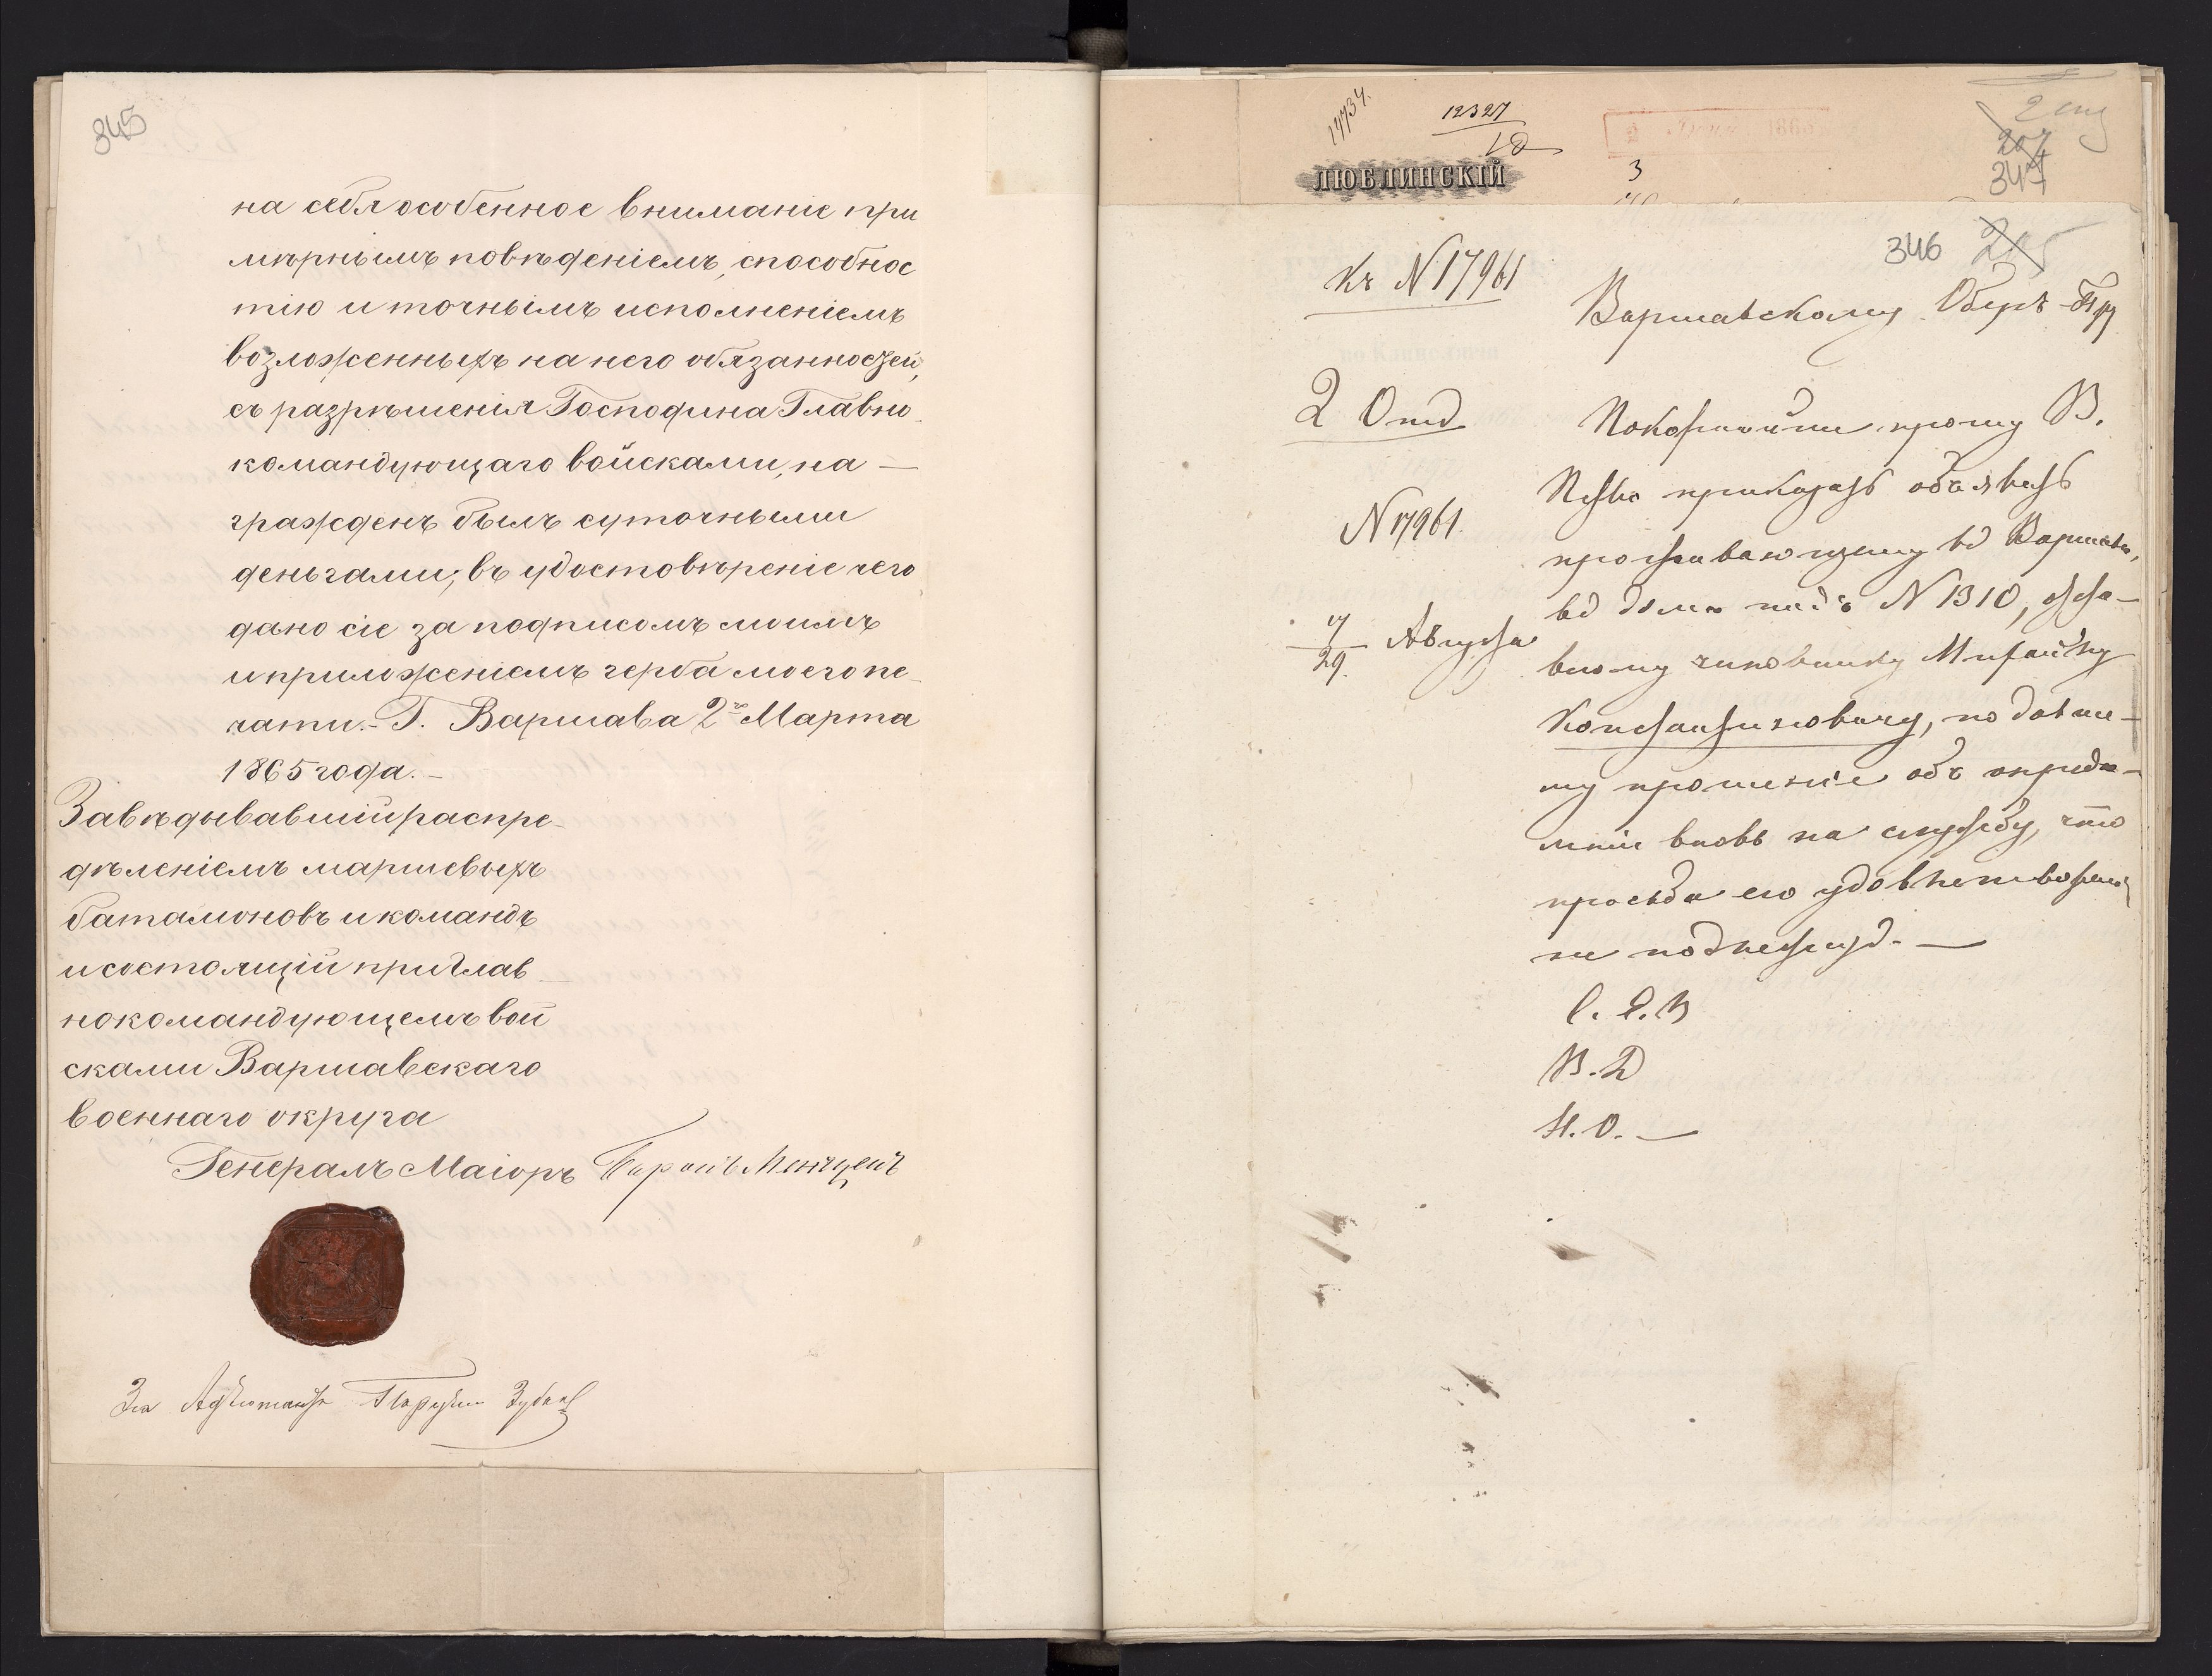 345
на себя особенное вниманіе при
мѣрнымъ поведеніемъ, способнос
тію и точнымъ исполненіемъ
возложенныхъ на него обязанностей,
съ разрѣшенія Господина Главно
командующаго войсками, на —
гражденъ былъ суточными
деньгами; въ удостовѣреніе чего
дано сіе за подписомъ моимъ
и приложеніемъ герба моего пе-
чати.- Г. Варшава 2го Марта
1865 года.-
Завѣдывавшій распре-
дѣленіемъ маршевыхъ
баталіоновъ и командъ
и состоящій при Глав
нокомандующемъ вой
сками Варшавскаго
военнаго округа
Генералъ Маіоръ Баронъ
За Адъютанта
17734.
12327
3
ЛЮБЛИНСКІЙ
347
346
Къ N 17961
Варшавскому Оберъ-
2 Отд
Покорнѣйше прошу В.
приказать объявить
N 17961.
проживающему въ Варшавѣ,
въ домѣ подъ N 1310, отста-
17/29. Августа
вному чиновнику
Константиновичу, подавше-
му прошеніе объ опредѣ-
леніи вновь на службу, что
просьба его удовлетворенію
не подлежитъ. —
С. Е. В
В. Д
Н. О. —